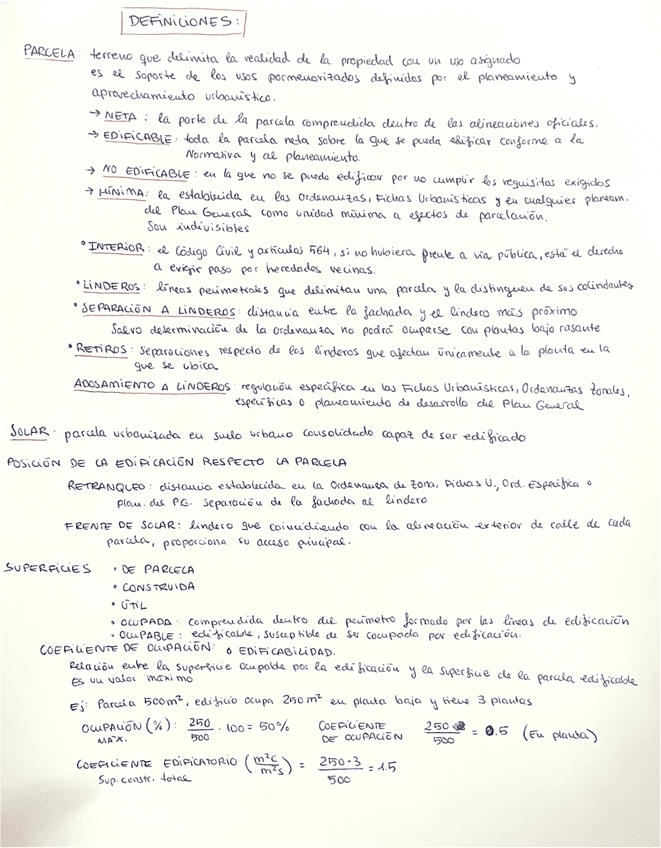 DEFINICIONES:
PARCELA: terreno que delimita la realidad de la propiedad con un uso asignado
es el soporte de los usos pormenorizados definidos por el planeamiento y
aprovechamiento urbanístico.
→ NETA: la parte de la parcela comprendida dentro de las alineaciones oficiales.
→ EDIFICABLE: toda la parcela neta sobre la que se pueda edificar conforme a la
Normativa y al planeamiento.
→ NO EDIFICABLE: en la que no se puede edificar por no cumplir los requisitos exigidos
→ MÍNIMA: la establecida en las Ordenanzas, Fichas Urbanísticas y en cualquier planeam.
del Plan General como unidad mínima a efectos de parcelación.
Son indivisibles
• INTERIOR: el Código Civil y artículos 564, si no hubiera frente a vía pública, está el derecho
a exigir paso por heredades vecinas.
• LINDEROS: líneas perimetrales que delimitan una parcela y la distinguen de sus colindantes
• SEPARACIÓN A LINDEROS: distancia entre la fachada y el lindero más próximo
Salvo determinación de la ordenanza no podrá ocuparse con plantas bajo rasante
• RETIROS: separaciones respecto de los linderos que afectan únicamente a la planta en la
que se ubica
ADOSAMIENTO A LINDEROS: regulación específica en las Fichas Urbanísticas, Ordenanzas Zonales,
específicas o planeamiento de desarrollo del Plan General
SOLAR: parcela urbanizada en suelo urbano consolidado capaz de ser edificado
POSICIÓN DE LA EDIFICACIÓN RESPECTO LA PARCELA
RETRANQUEO: distancia establecida en la Ordenanza de Zona, Fichas U., Ord. Específica o
Plan. del PG. Separación de la fachada al lindero
FRENTE DE SOLAR: lindero que coincidiendo con la alineación exterior de calle de cada
parcela, proporciona su acceso principal.
SUPERFICIES • DE PARCELA
• CONSTRUIDA
• ÚTIL
• OCUPADA: comprendida dentro del perímetro formado por las líneas de edificación
• OCUPABLE: edificable, susceptible de ser ocupada por edificación.
COEFICIENTE DE OCUPACIÓN: o EDIFICABILIDAD.
Relación entre la superficie ocupable por la edificación y la superficie de la parcela edificable
Es un valor máximo
Ej: Parcela 500m², edificio ocupa 250m² en planta baja y tiene 3 plantas
OCUPACIÓN (%): 250/500 · 100 = 50% COEFICIENTE DE OCUPACIÓN 250/500 = 0.5 (En planta)
MÁX.
COEFICIENTE EDIFICATORIO (m²c/m²s) = 250·3/500 = 1.5
Sup. constr. total